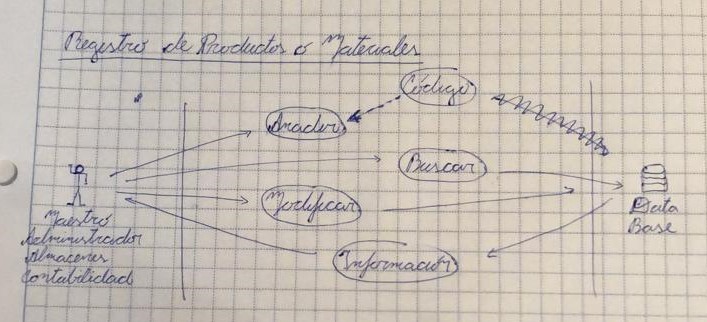 Registro de Productos o Materiales
Código
Anadir
Buscar
Modificar
Información
Maestro
Administrador
Almacenes
Contabilidad
Data
Base